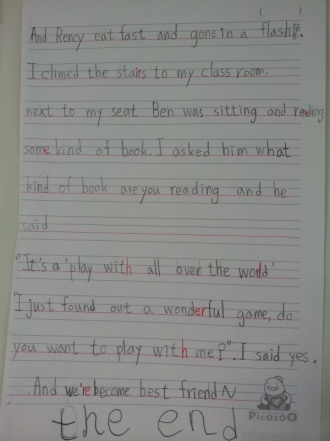 And Rency eat fast and gone in a flash.
I climed the stairs to my class room.
next to my seat Ben was sitting and reading
some kind of book. I asked him what
kind of book are you reading and he
said
"It's a 'play with all over the world'
"I just found out a wonderful game, do
you want to play with me?". I said yes.
And we're become best friend~
the end
Picozoo